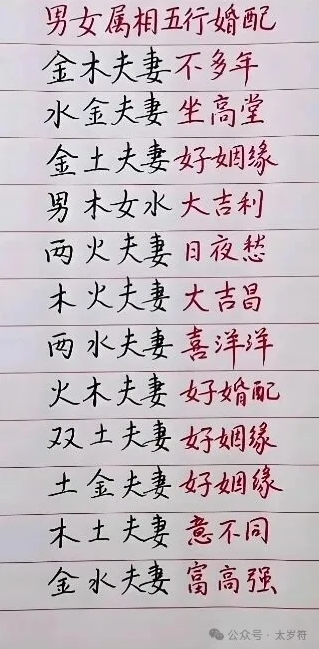 男女属相五行婚配
金木夫妻不多年
水金夫妻坐高堂
金土夫妻好姻缘
男木女水大吉利
两火夫妻日夜愁
木火夫妻大吉昌
两水夫妻喜洋洋
火木夫妻好婚配
双土夫妻好姻缘
土金夫妻好姻缘
木土夫妻意不同
金水夫妻富高强
公众号·太岁符